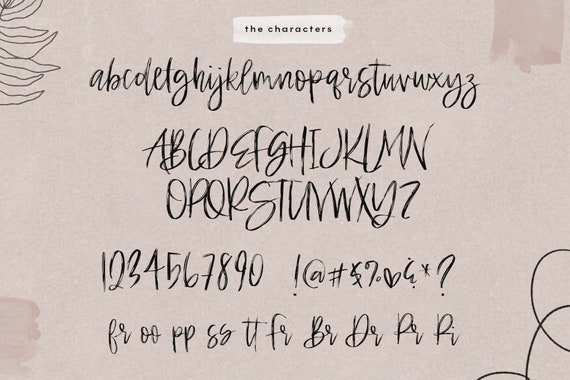 the characters
abcdefghijklmnopqrstuvwxyz
ABCDEFGHIJKLMN
OPQRSTUVWXYZ
1234567890 !@#$%♥&*?
fr oo pp ss tt fr Br Dr Pr Ri